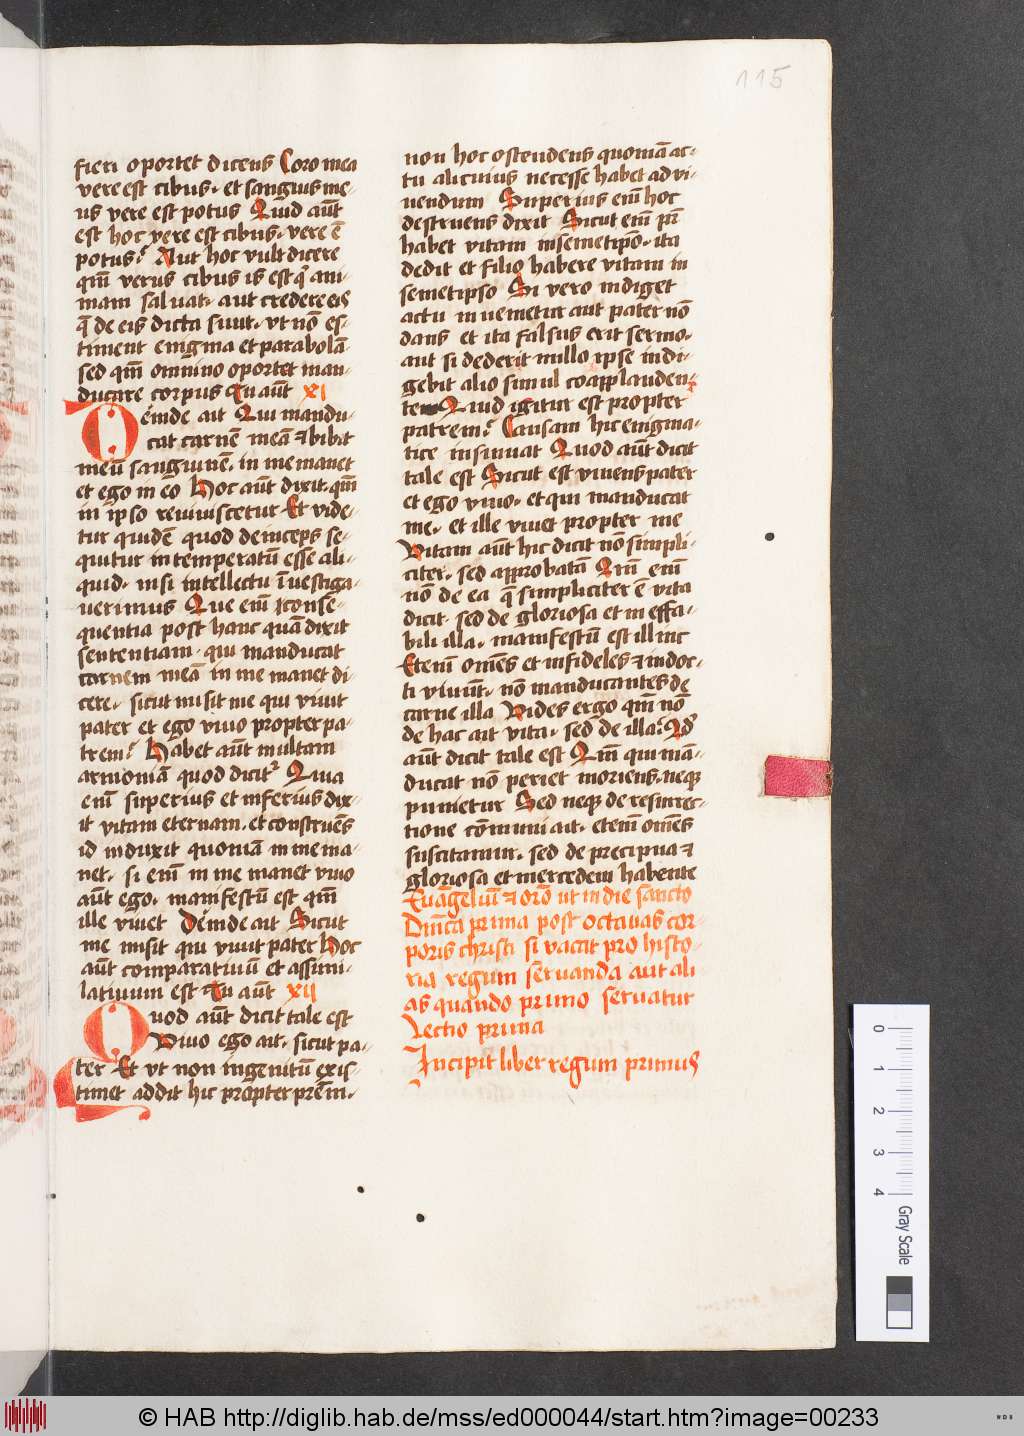 115
fieri oportet dicens Caro mea
vere est cibus· et sanguis me-
us vere est potus Quid aūt
est hoc vere est cibus· vere ē
potus? Aut hoc vult dicere
qm̄ verus cibus is est qͥ ani-
mam salvat· aut credere eis
q̄ de eis dicta sunt· vt nō es-
timent enigma et parabolā·
sed qm̄ omnino oportet man-
ducare corpus Tu aūt XI
Deinde ait Qui mandu-
cat carnē meā ⁊ bibit
meū sanguinē· in me manet
et ego in eo Hoc aūt dixit· qm̄
in ip̄so reviviscetur Et vide-
tur quidē quod deinceps se-
quitur intemperatū esse ali-
quid· nisi intellectu īvestiga-
verimus Que em̄ consē-
quentia post hanc quā dixit
sententiam· qui manducat
carnem meā in me manet di-
cere· sicut misit me qui vivit
pater et ego vivo propter pa-
trem? Habet aūt multam
armoniam quod dicitᷣ Quia
em̄ superius et inferius dix-
it vitam eternam· et construēs
id induxit quoniam in me ma-
net· si em̄ in me manet vivo
aūt ego· manifestū est qm̄
ille vivet Deinde ait Sicut
me misit qui vivit pater Hoc
aūt comparativū et assimi-
lativum est Tu aūt XII
Quod aūt dicit tale est
Vivo ego ait· sicut pa-
ter Et vt non ingenitū exis-
timet addit hic propter prēm·
non hoc ostendens quoniā ac-
tu alicuius necesse habet ad vi-
vendum Superius em̄ hoc
destruens dixit Sicut em̄ pr̄
habet vitam in semetipo· ita
dedit et filio habere vitam in
semetipso Si vero indiget
actu invenietur aut pater nō
dans et ita falsus erit sermo·
aut si dederit nullo ipse indi-
gebit alio simul coapplauden-
te Quid igitur est propter
patrem? Causam hic enigma-
tice insinuat Quod aūt dicit
tale est Sicut est vivens pater
et ego vivo· et qui manducat
me· et ille vivet propter me
Vitam aūt hic dicit nō simpli-
citer· sed approbatā Qm̄ em̄
nō de ea q̄ simpliciter ē vita
dicit· sed de gloriosa et ineffa-
bili illa· manifestū est illinc
Etem̄ om̄es et infideles ⁊ indoc-
ti vivūt· nō manducantes de
carne illa Vides ergo qm̄ nō
de hac ait vita· sed de illa?
aūt dicit tale est Qm̄ qui mā-
ducat nō periet moriens· neqꝫ
punietur Sed neqꝫ de resurrec-
tione cōmuni ait· etem̄ om̄es
suscitamur· sed de precipua ⁊
gloriosa et mercedem habente
Euāgeliū ⁊ orō ut in die sancto
Dn̄ica prima post octavas cor-
poris christi si vacat pro histo-
ria regum sēruanda aut ali
as quando primo servatur
Lectio prima
Incipit liber regum primus
0
1
2
3
4
Gray Scale
© HAB http://diglib.hab.de/mss/ed000044/start.htm?image=00233